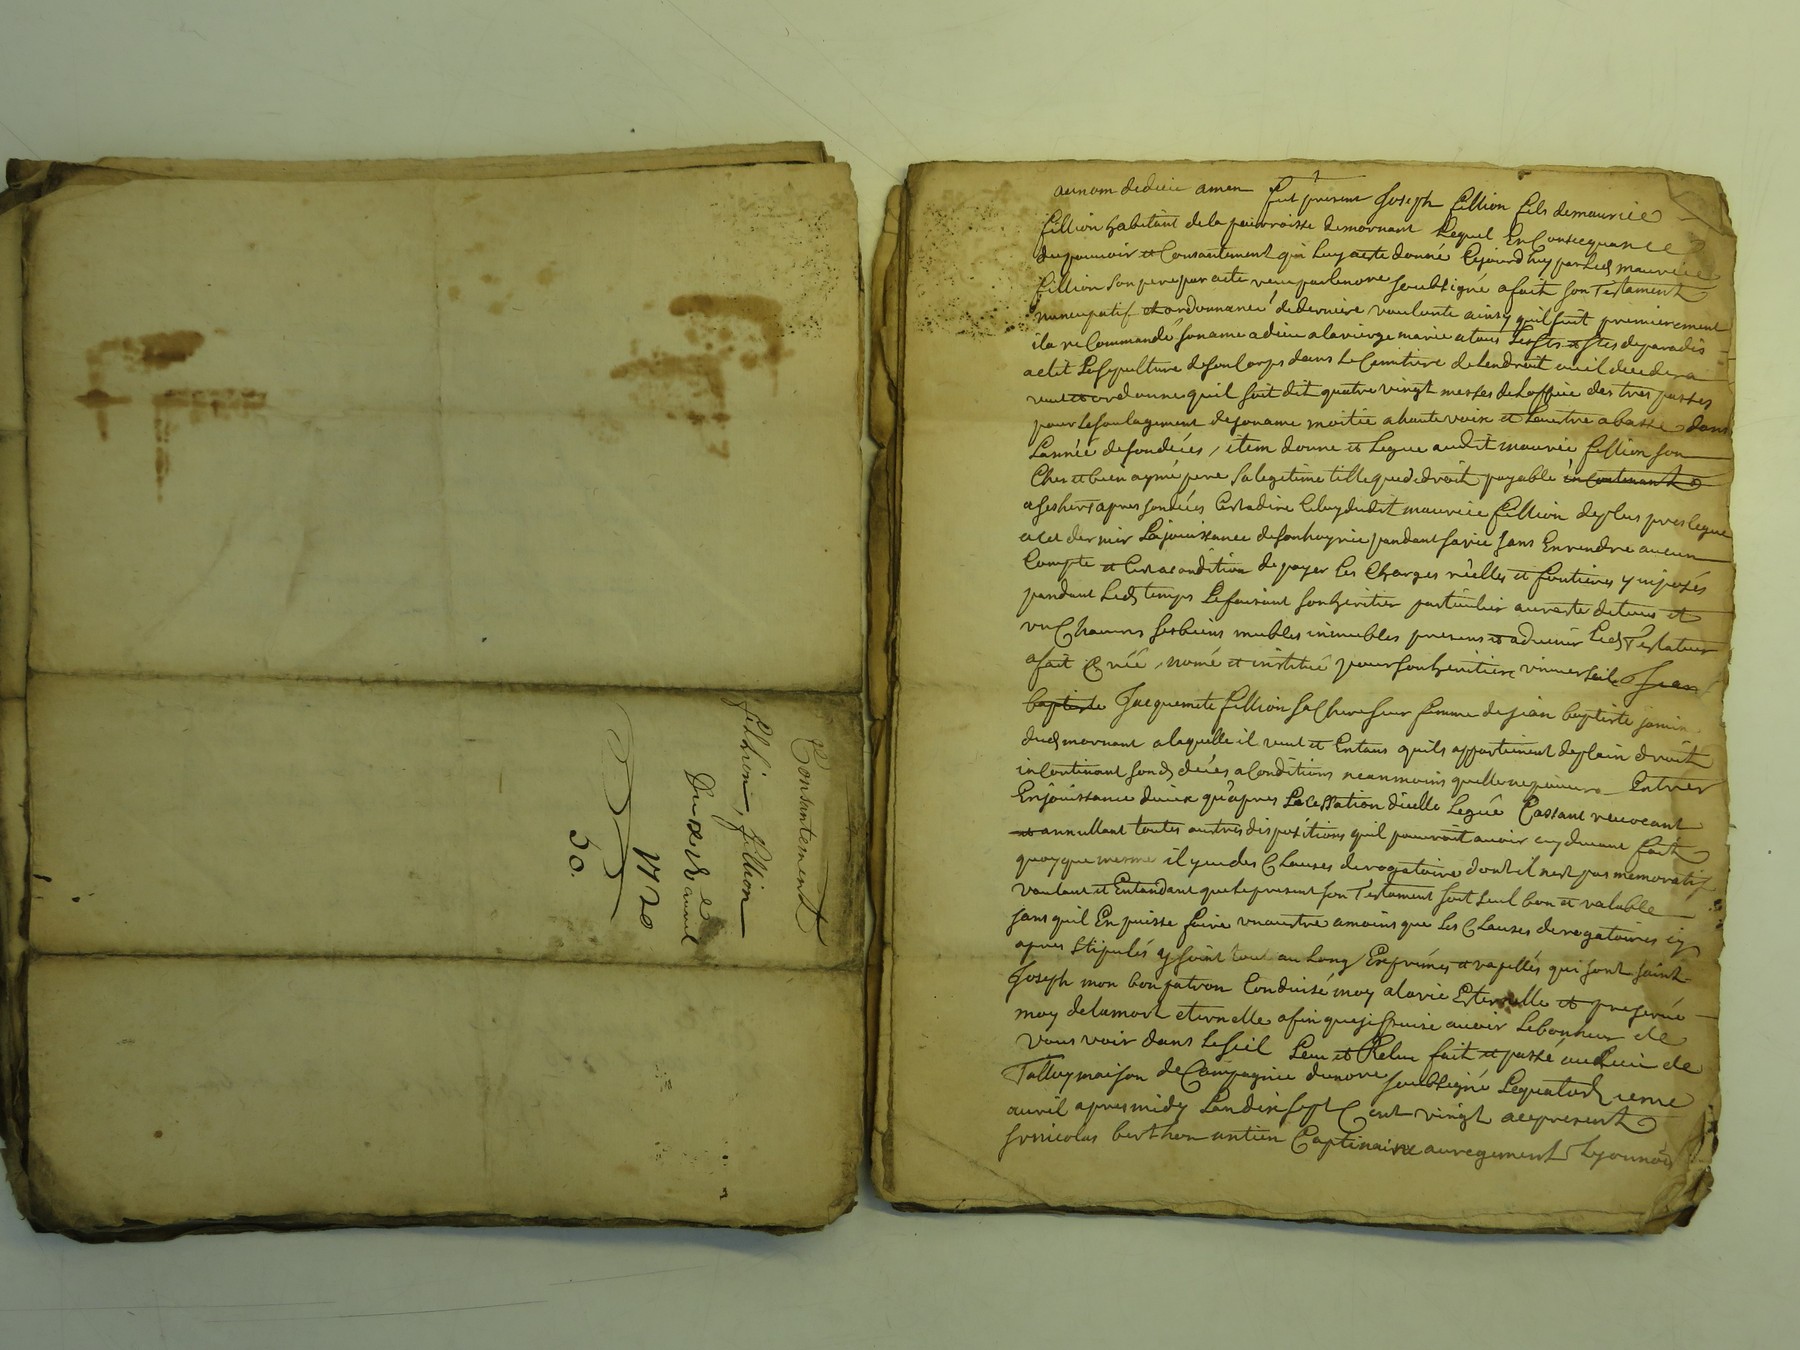 Consantement
fillion, fillion
Du 14e avril
1720
50.
au nom de dieu amen fut present Joseph fillion fils de maurice
fillion habitant de la parroisse de mornant Lequel En Consecquance
du pouvoir et Consantement qui Luy a este donné Cejourdhuy par Led maurice
fillion son pere par acte receu par le no.re soubsigné a fait son Testament
nuncupatif et ordonnance de derniere voulonte ainsy quil suit premierement
il a reCommandé son ame a dieu a la vierge marie a tous Les sts et stes de paradis
a elit Le sepulture de son Corps dans Le Cemitiere de Lendroit ou il decedera
veut et ordonne quil soit dit quatre vingt messes de Loffice des trespassés
pour Le soulagement de son ame moitié a haute voix et Lautre a basse dans
Lannée de son decés, item donne et Legue audit maurice fillion son
Cher et bien aymé pere sa legitime telle que de droit payable incontinant
a ses hers apres son decés Cestadire Celuy dudit maurice fillion de plus pres legue
a Cet dernier La jouissance de son hoyrie pandant sa vie sans En rendre aucun
Compte et Cest a condition de payer Les Charges réelles et fontieres y imposés
pandant Led temps Le faisant son heritier particulier au reste de tous et
un Chacuns ses biens meubles immeubles presens et advenir Led Testateur
a fait Créé, nomé et institué pour son heritiere universelle Jean
baptiste Jacquemete fillion sa Chere seur femme de jean baptiste jamin
dud mornant a laquelle il veut et Entans quils appartienent de plain droit
incontinant son d decés a Conditions neanmoins quelle ne poura Entrer
En jouissance diceux qu'apres La cessation dicelle Legué Cassant revocant
et annullant toutes autres dispositions quil pourroit avoir cy devant fait
quoy que mesme il y eu des Clauses derogatoire dont il nest pas memoratif
voulant et Entandant que Le present son Testament soit seul bon et valable
sans quil En puisse faire un autre a moins que Les Clauses derogatoires cy
apres stipulés y soint tou au Long Exprimés et rapellés qui sont saint
Joseph mon bon patron Conduisé moy a la vie Eternelle et preservé
moy de la mort eternelle afin que je puise avoir Le bonheur de
vous voir dans Le siel Leu et Releu fait et passé au Lieu de
Talluy maison de Campagnie du no.re soubsigné Le quatorzieme
avril apres midy Lan dix sept Cent vingt a ce present
sr nicolas berthon antien Captinaine au regement Lyonnois